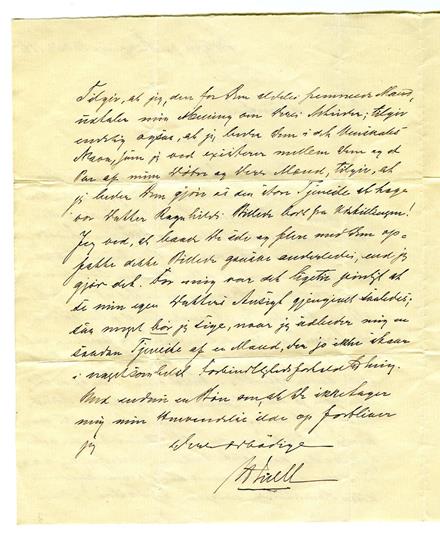 Tilgiv, at jeg, den for Dem aldeles fremmede Mand,
udtaler min Mening om Deres Arbeider; tilgiv
endelig ogsaa, at jeg beder Dem i det Venskabs
Navn, som jeg ved existerer mellem Dem og et
Par af mine og Deres Mænd, tilgiv, at
jeg beder Dem gjøre os den store Tjeneste at tage
vor Datter Ragnhilds Billede bort fra Udstillingen!
Jeg ved, at baade De selv og flere med Dem op-
fatte dette Billede ganske anderledes, end jeg
gjør det. For mig var det Legeme pinligt at
se min egen Datters Ansigt gjengivet saaledes;
saa meget bør jeg sige, naar jeg udbeder mig en
saadan Tjeneste af en Mand, der jo ikke staar
i nogetsomhelst Forbindtlighedsforhold til mig.
Med endnu en Bøn om, at De ikke tager
mig min Henvendelse ilde op forbliver
jeg Deres ærbødige